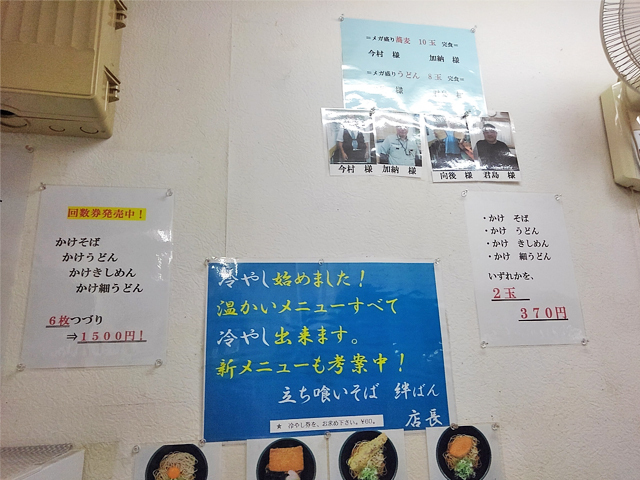 ＝メガ盛り蕎麦 10玉 完食＝
今村 様 加納 様
＝メガ盛りうどん 8玉 完食＝
様 様
今村 様 加納 様 向後 様 君島 様
回数券発売中！
かけそば
かけうどん
かけきしめん
かけ細うどん
6枚つづり
⇒1500円！
冷やし始めました！
温かいメニューすべて
冷やし出来ます。
新メニューも考案中！
立ち喰いそば 絆ばん
店長
★ 冷やし券を、お求め下さい。¥60。
・かけ そば
・かけ うどん
・かけ きしめん
・かけ 細うどん
いずれかを、
2玉
370円